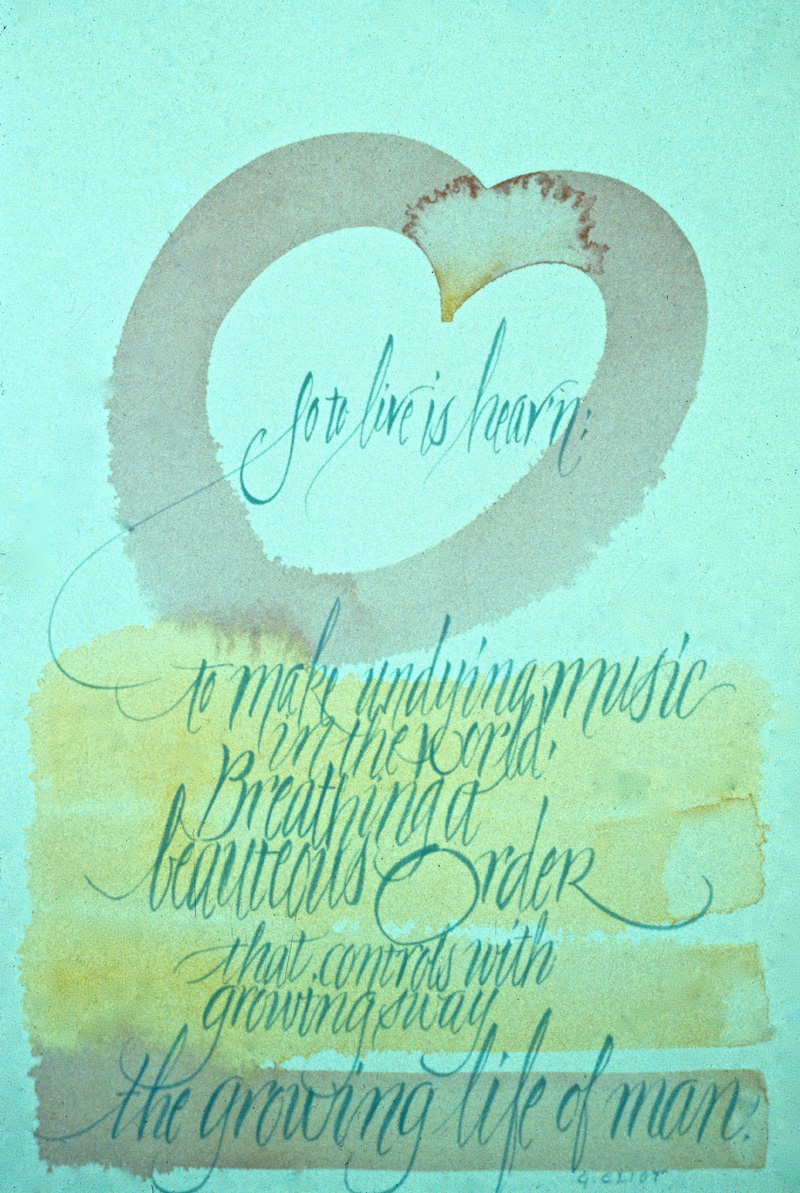 So to live is heav'n:
to make undying music
in the world,
Breathing a
beauteous Order
that controls with
growing sway
the growing life of man.
G. ELIOT